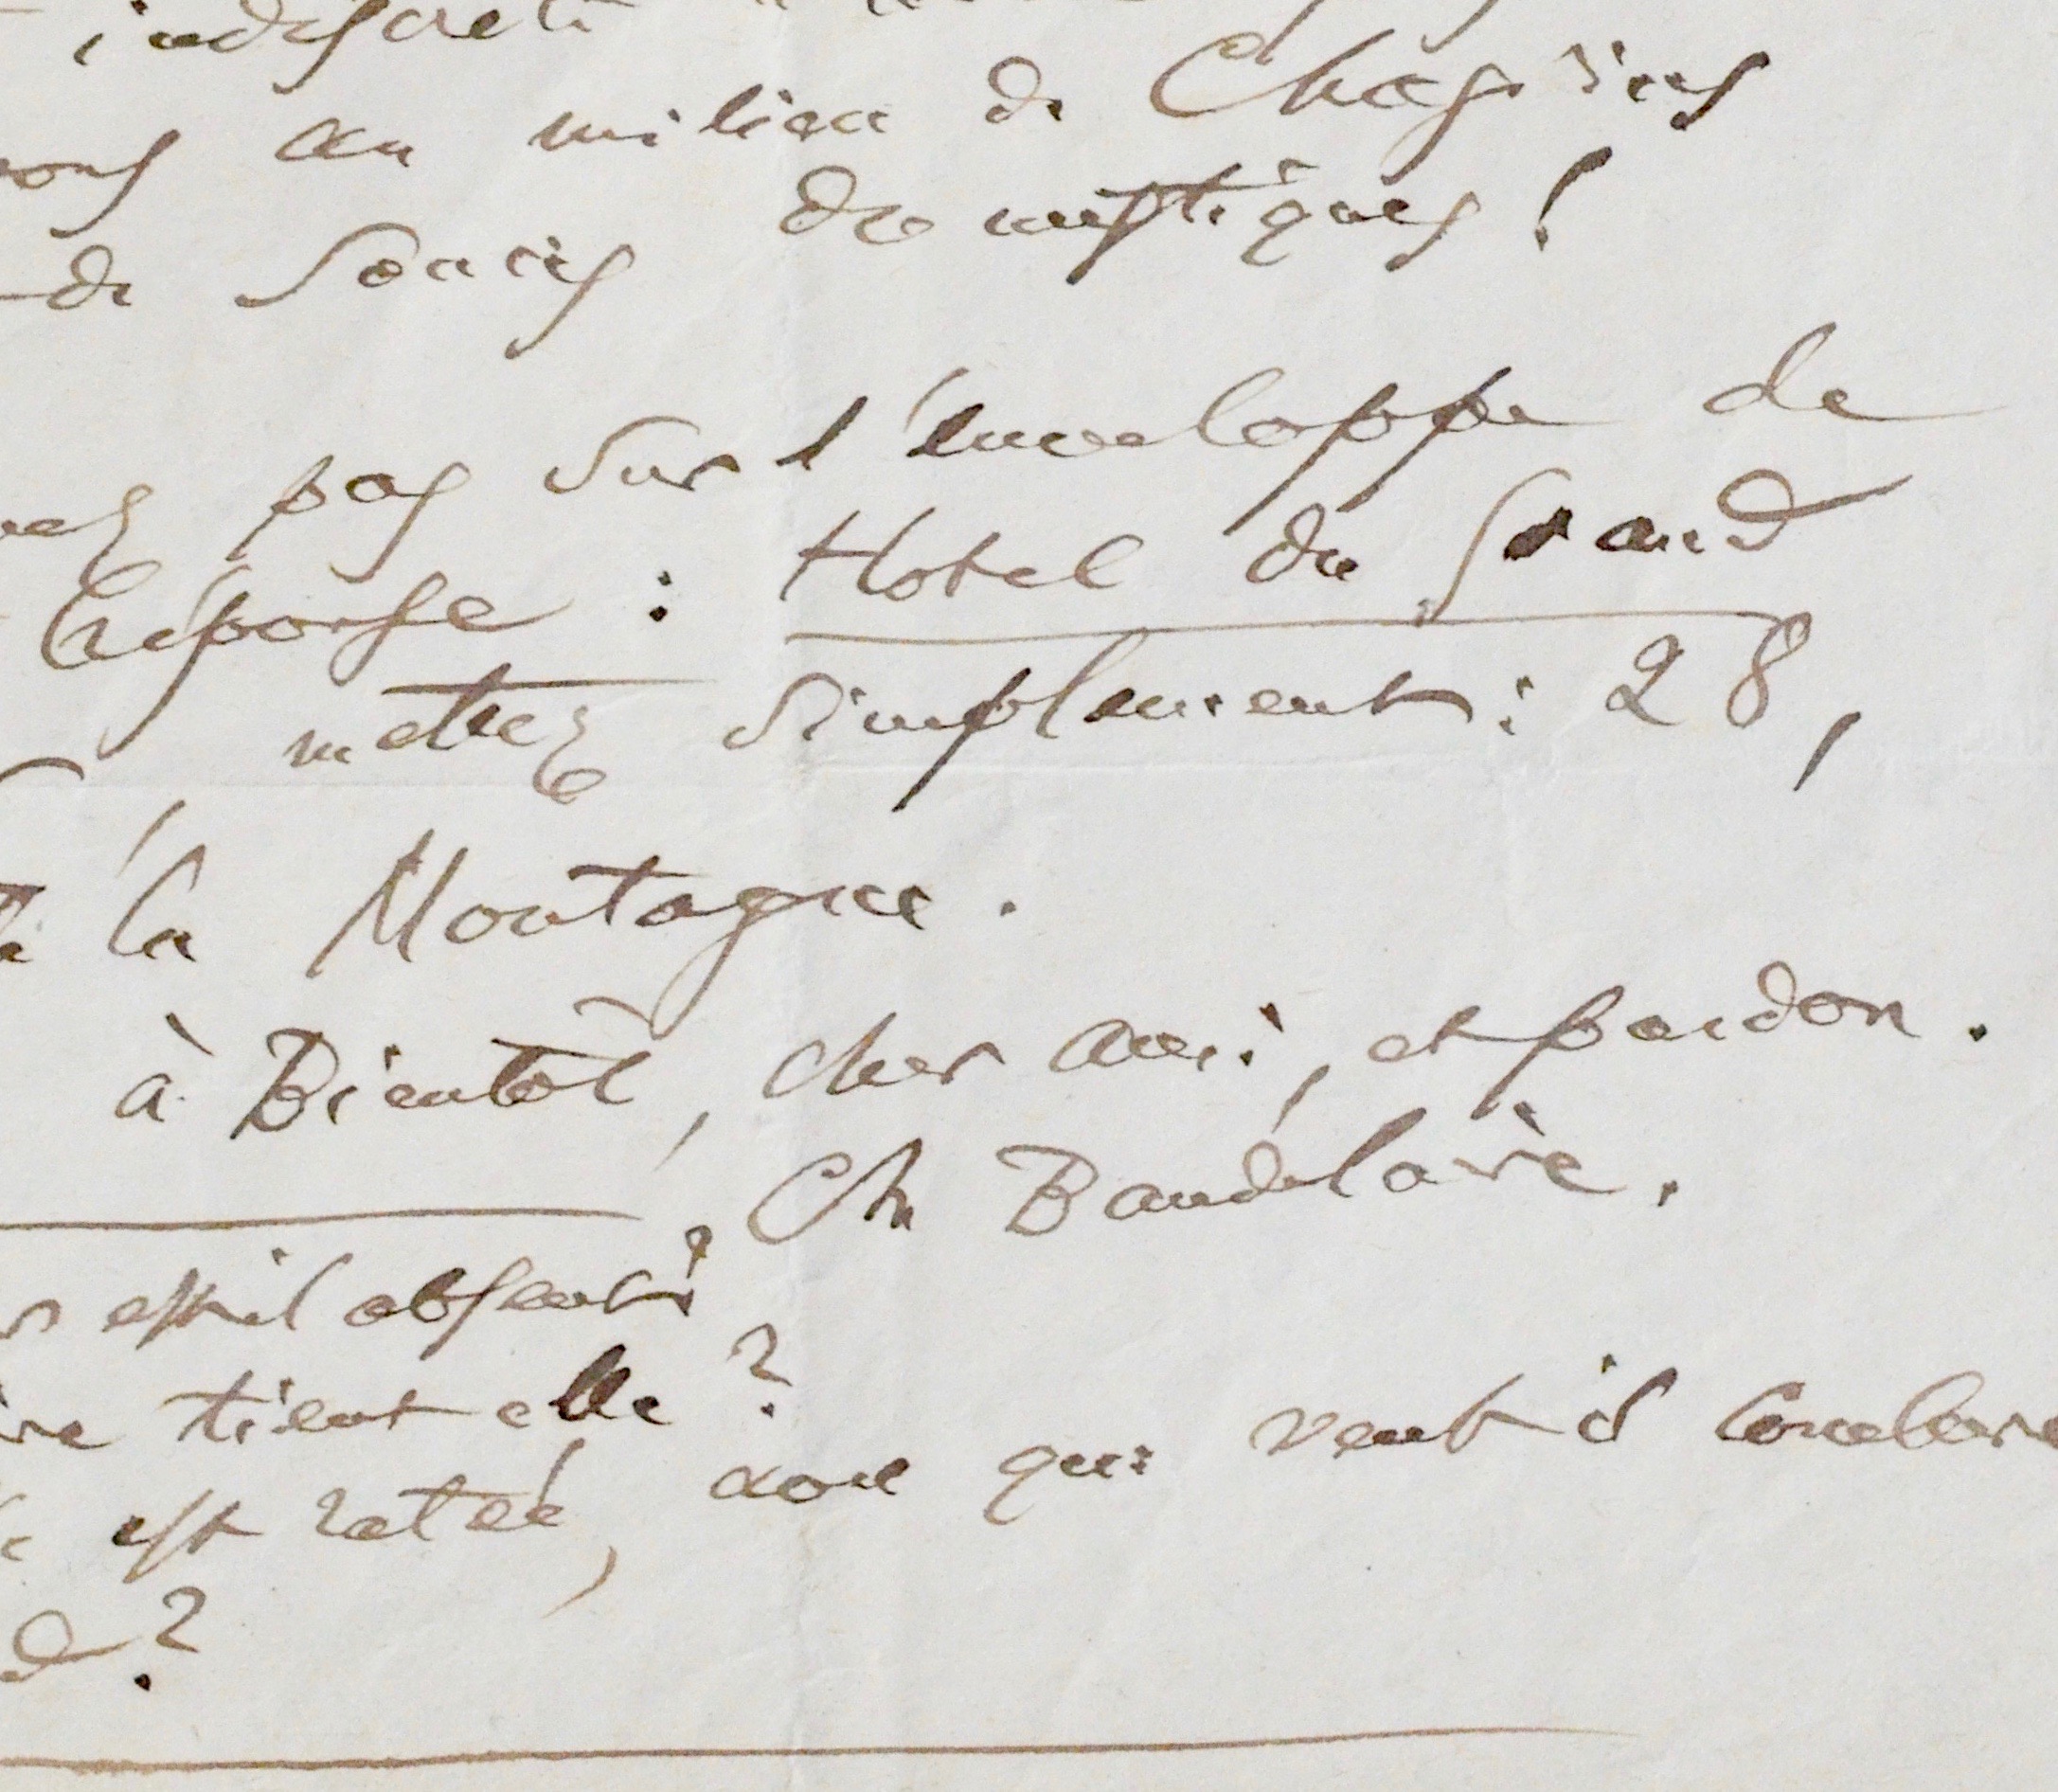 indiscret
au milieu de Chagrins
de Soucis domestiques!
pas sur l'enveloppe de
réponse : Hotel du Grand
mettez simplement : 28,
la Montagne.
à Bientôt, cher ami, et pardon.
Ch Baudelaire.
est-il absent?
tient elle?
est ratée, avec qui veut il conclure
?